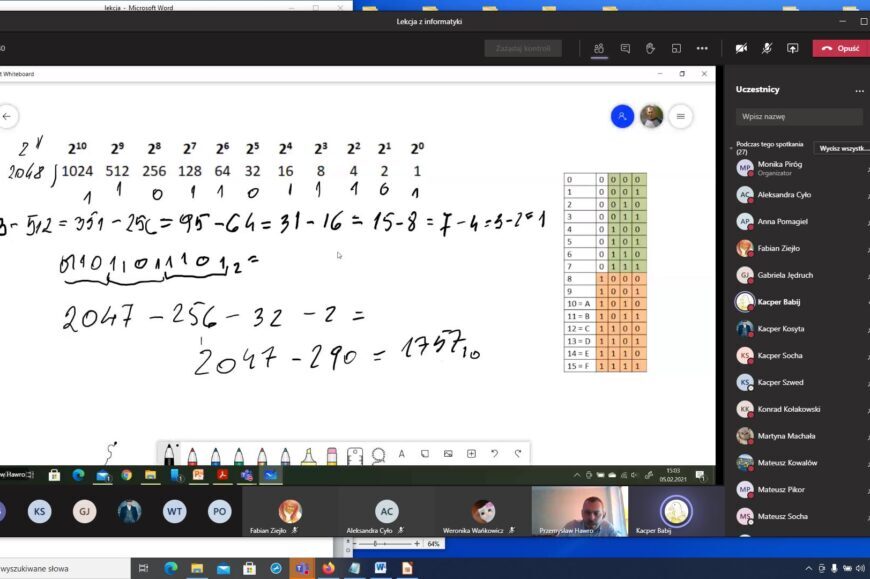 lekcja - Microsoft Word
Lekcja z informatyki
Zażądaj kontroli
Opuść
t Whiteboard
2¹¹ 2¹⁰ 2⁹ 2⁸ 2⁷ 2⁶ 2⁵ 2⁴ 2³ 2² 2¹ 2⁰
2048 1024 512 256 128 64 32 16 8 4 2 1
1 1 0 1 1 0 1 1 1 0 1
- 512 = 351 - 256 = 95 - 64 = 31 - 16 = 15 - 8 = 7 - 4 = 3 - 2 = 1
011011011101₂ =
2047 - 256 - 32 - 2 =
2047 - 290 = 1757₁₀
0 0 0 0 0
1 0 0 0 1
2 0 0 1 0
3 0 0 1 1
4 0 1 0 0
5 0 1 0 1
6 0 1 1 0
7 0 1 1 1
8 1 0 0 0
9 1 0 0 1
10 = A 1 0 1 0
11 = B 1 0 1 1
12 = C 1 1 0 0
13 = D 1 1 0 1
14 = E 1 1 1 0
15 = F 1 1 1 1
15:03
05.02.2021
Uczestnicy
Wpisz nazwę
Podczas tego spotkania (27)
Wycisz wszystk...
MP Monika Piróg
Organizator
AC Aleksandra Cyło
AP Anna Pomagiel
Fabian Ziejło
GJ Gabriela Jędruch
Kacper Babij
Kacper Kosyta
KS Kacper Socha
KS Kacper Szwed
KK Konrad Kołakowski
Martyna Machała
Mateusz Kowalów
MP Mateusz Pikor
MS Mateusz Socha
KS GJ WT PO
AC
Fabian Ziejło
Aleksandra Cyło
Weronika Wańkowicz
Przemysław Hawro
Kacper Babij
64%
wyszukiwane słowa